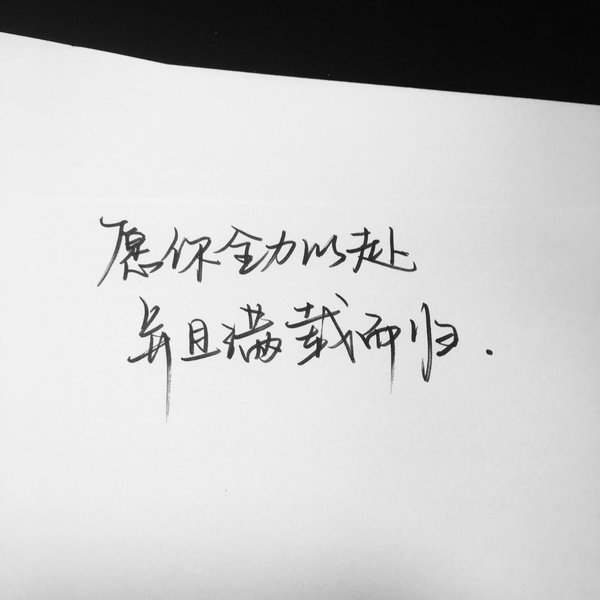 愿你全力以赴
并且满载而归.